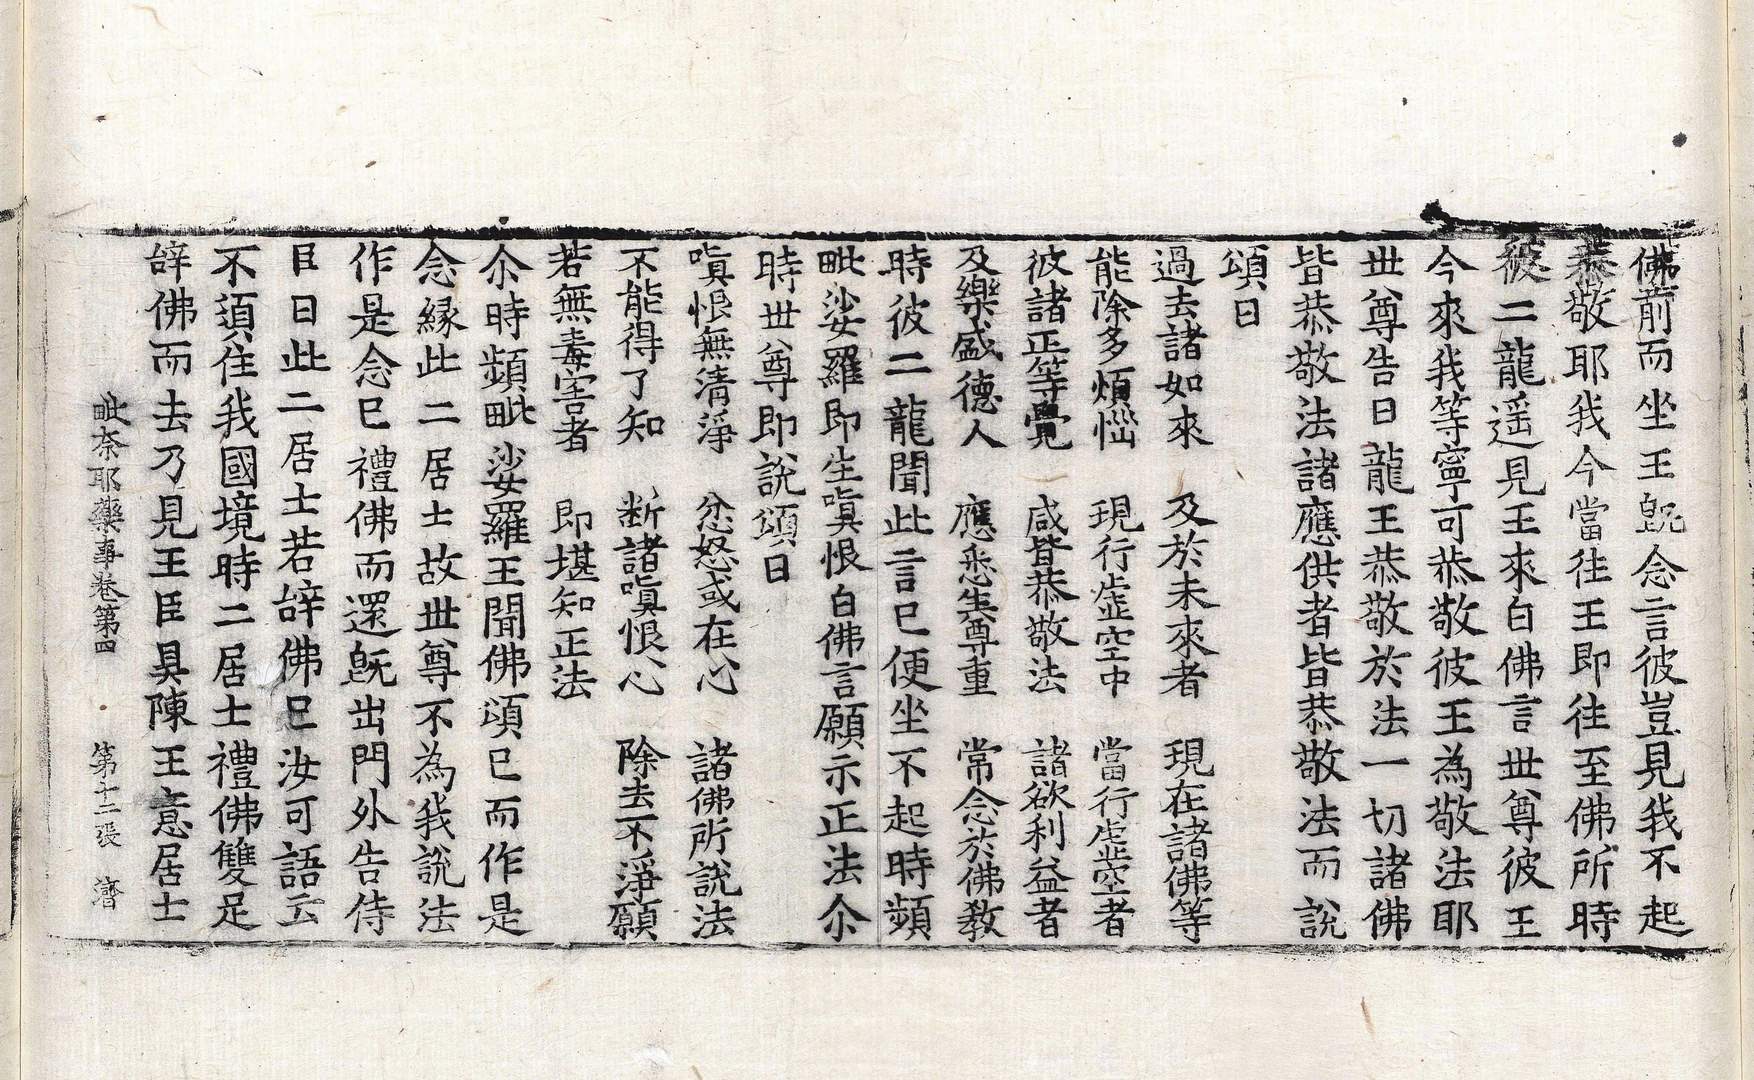 佛前而坐王旣念言彼豈見我不起
恭敬耶我今當往王即往至佛所時
彼二龍遥見王來白佛言丗尊彼王
今來我等寧可恭敬彼王為敬法耶
丗尊告曰龍王恭敬於法一切諸佛
皆恭敬法諸應供者皆恭敬法而說
頌曰
過去諸如來　及於未來者　現在諸佛等
能除多煩惱　現行虛空中　當行虛空者
彼諸正等覺　咸皆恭敬法　諸欲利益者
及樂盛德人　應悉生尊重　常念於佛教
時彼二龍聞此言已便坐不起時頻
毗娑羅即生嗔恨白佛言願示正法尒
時丗尊即說頌曰
嗔恨無清淨　忿怒或在心　諸佛所說法
不能得了知　断諸嗔恨心　除去不淨願
若無毒害者　即堪知正法
尒時頻毗娑羅王聞佛頌已而作是
念縁此二居士故丗尊不為我說法
作是念已禮佛而還旣出門外告侍
臣曰此二居士若辝佛已汝可語云
不須住我國境時二居士禮佛雙足
辝佛而去乃見王臣具陳王意居士
毗柰耶藥事卷第四　第十二張　濟